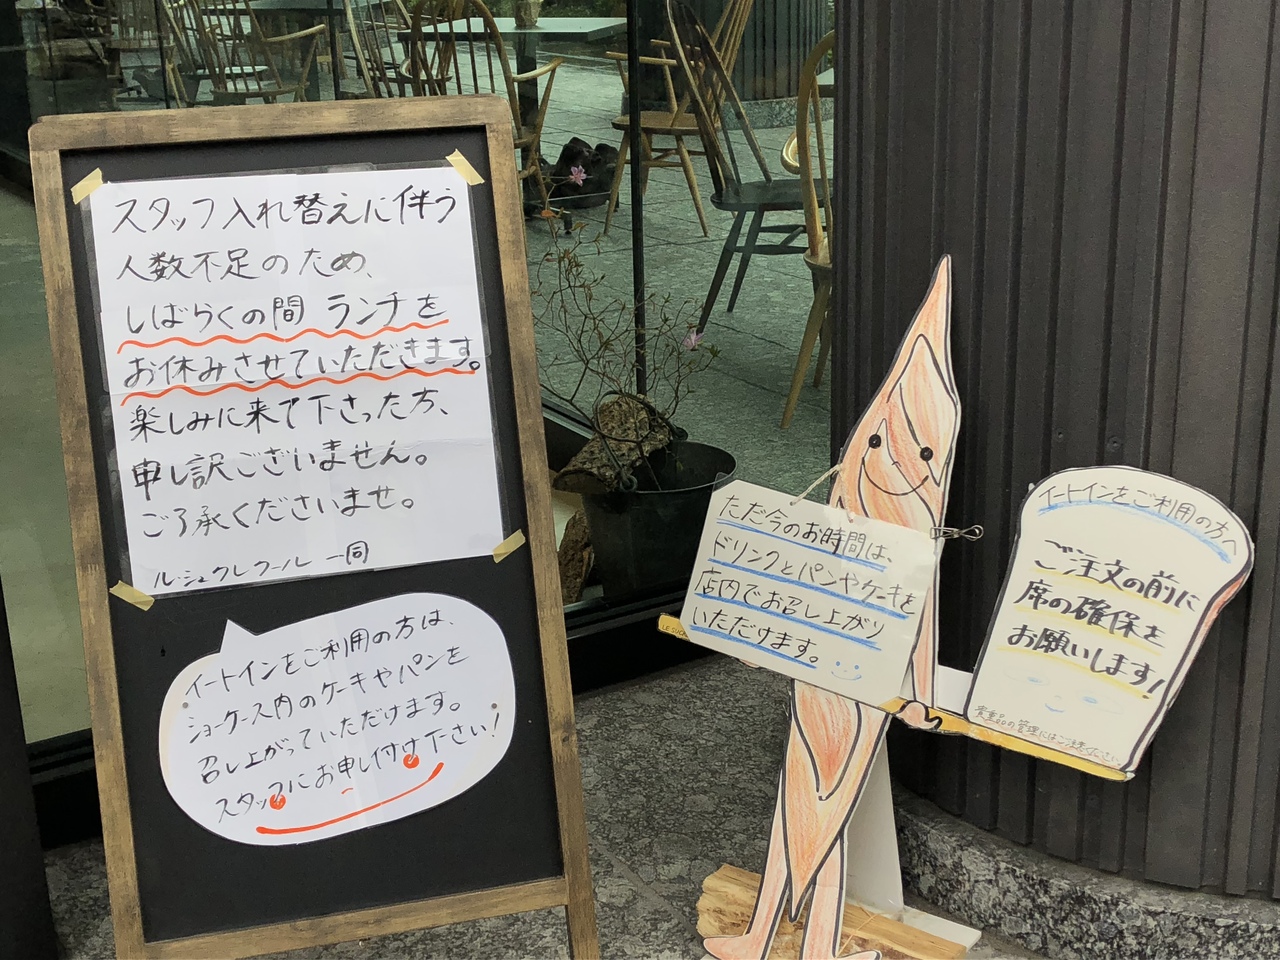 スタッフ入れ替えに伴う
人数不足のため、
しばらくの間 ランチを
お休みさせていただきます。
楽しみに来て下さった方、
申し訳ございません。
ご了承くださいませ。
ル・シュクレクール 一同
イートインをご利用の方は、
ショーケース内のケーキやパンを
召し上がっていただけます。
スタッフにお申し付け下さい!
ただ今のお時間は、
ドリンクとパンやケーキを
店内でお召し上がり
いただけます。
イートインをご利用の方へ
ご注文の前に
席の確保を
お願いします!
貴重品の管理にはご注意ください